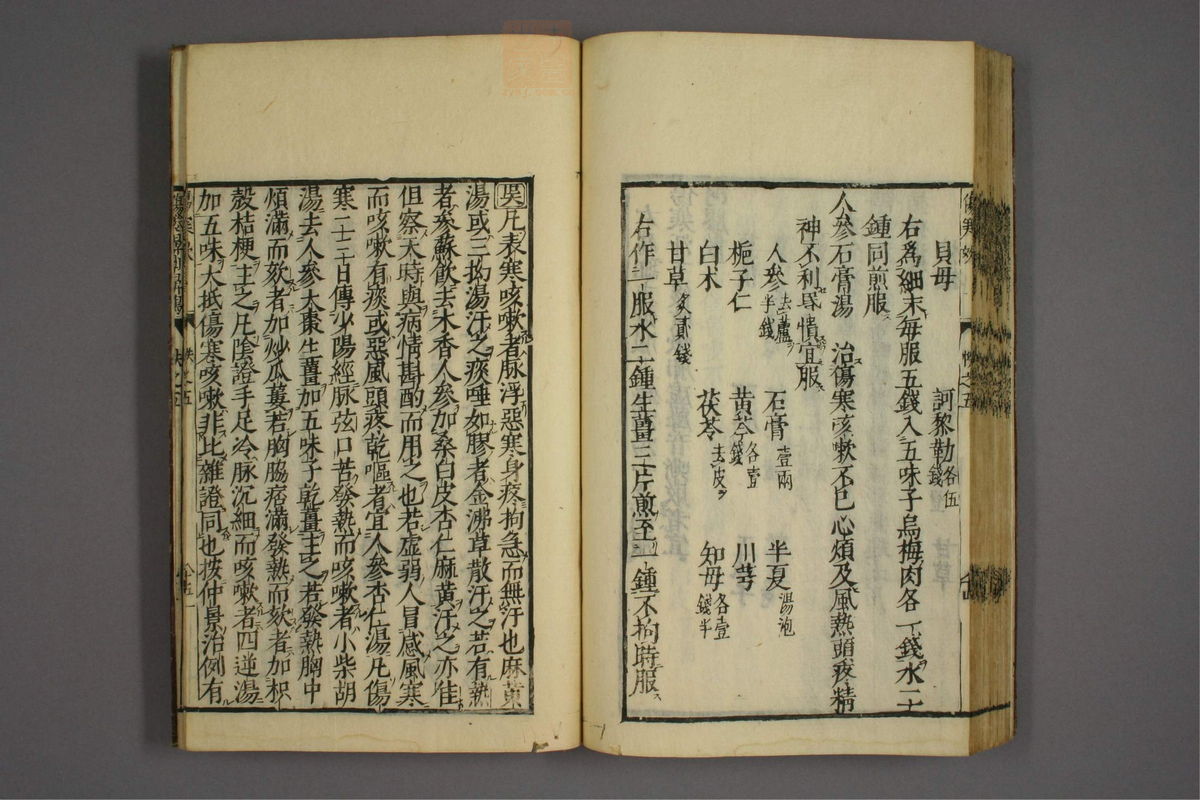 貝母 訶黎勒各伍錢
右爲細末每服五錢入五味子烏梅肉各一錢水二
鍾同煎服
人參石膏湯 治傷寒咳嗽不已心煩及風熱頭疼精
神不利昏憒宜服
人參去蘆半錢 石膏壹兩 半夏湯泡
梔子仁 黃芩各壹錢 川芎
白朮 茯苓去皮 知母各壹錢半
甘草炙貳錢
右作一服水二鍾生薑三片煎至一鍾不拘時服
吳凡表寒咳嗽者脉浮惡寒身疼拘急而無汗也麻黃
湯或三拗湯汗之痰唾如膠者金沸草散汗之若有熱
者參蘇飲去木香人參加桑白皮杏仁麻黃汗之亦佳
但察天時與病情斟酌而用之也若虛弱人冒感風寒
而咳嗽有痰或惡風頭疼乾嘔者宜人參杏仁湯凡傷
寒二三日傳少陽經脉弦口苦發熱而咳嗽者小柴胡
湯去人參大棗生薑加五味子乾薑主之若發熱胸中
煩滿而欬者加炒瓜蔞若胸脇痞滿發熱而欬者加枳
殼桔梗主之凡陰證手足冷脉沉細而咳嗽者四逆湯
加五味大抵傷寒咳嗽非比雜證同也按仲景治例有